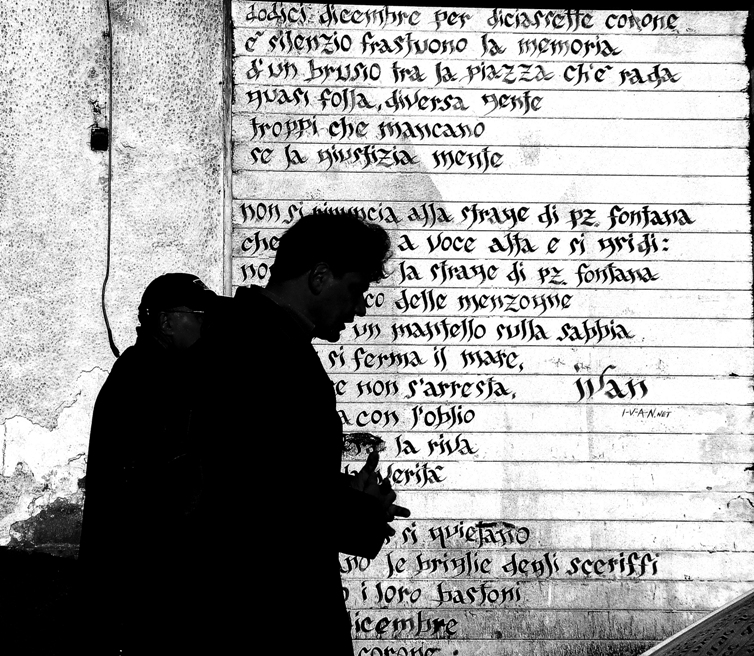 dodici dicembre per diciassette corone
è silenzio frastuono la memoria
d'un brusio tra la piazza ch'è rada
quasi folla, diversa gente
troppi che mancano
se la giustizia mente
non si rinuncia alla strage di pz. fontana
che a voce alta e si gridi:
la strage di pz. fontana
delle menzogne
un mantello sulla sabbia
si ferma il mare,
non s'arresta,
ivan
con l'oblio
I-V-A-N.NET
la riva
verità
si quietano
le briglie degli sceriffi
i loro bastoni
dicembre
corone